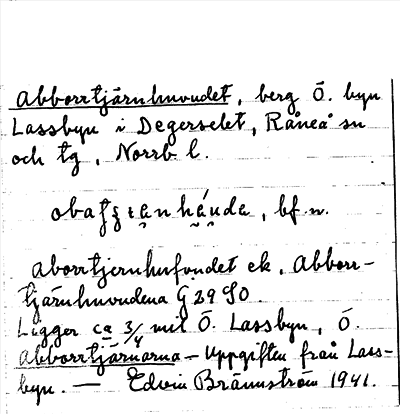 Abborrtjärnhuvudet, berg Ö. byn
Lassbyn i Degerselet, Råneå sn
och tg, Norrb l.
bf. n.
aborrtjernhufvudet ek, Abborr-
tjärnhuvudena G 29 SO.
Ligger ca 3/4 mil Ö. Lassbyn, Ö.
Abborrtjärnarna – Uppgiften från Lass-
byn. — Edvin Brännström 1941.